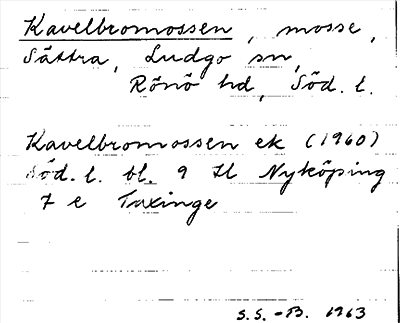 Kavelbromossen, mosse,
Sättra, Ludgo sn,
Rönö hd, Söd. l.
Kavelbromossen ek (1960)
Söd. l. bl. 9 H Nyköping
7 e Taxinge
S.S. -B. 1963